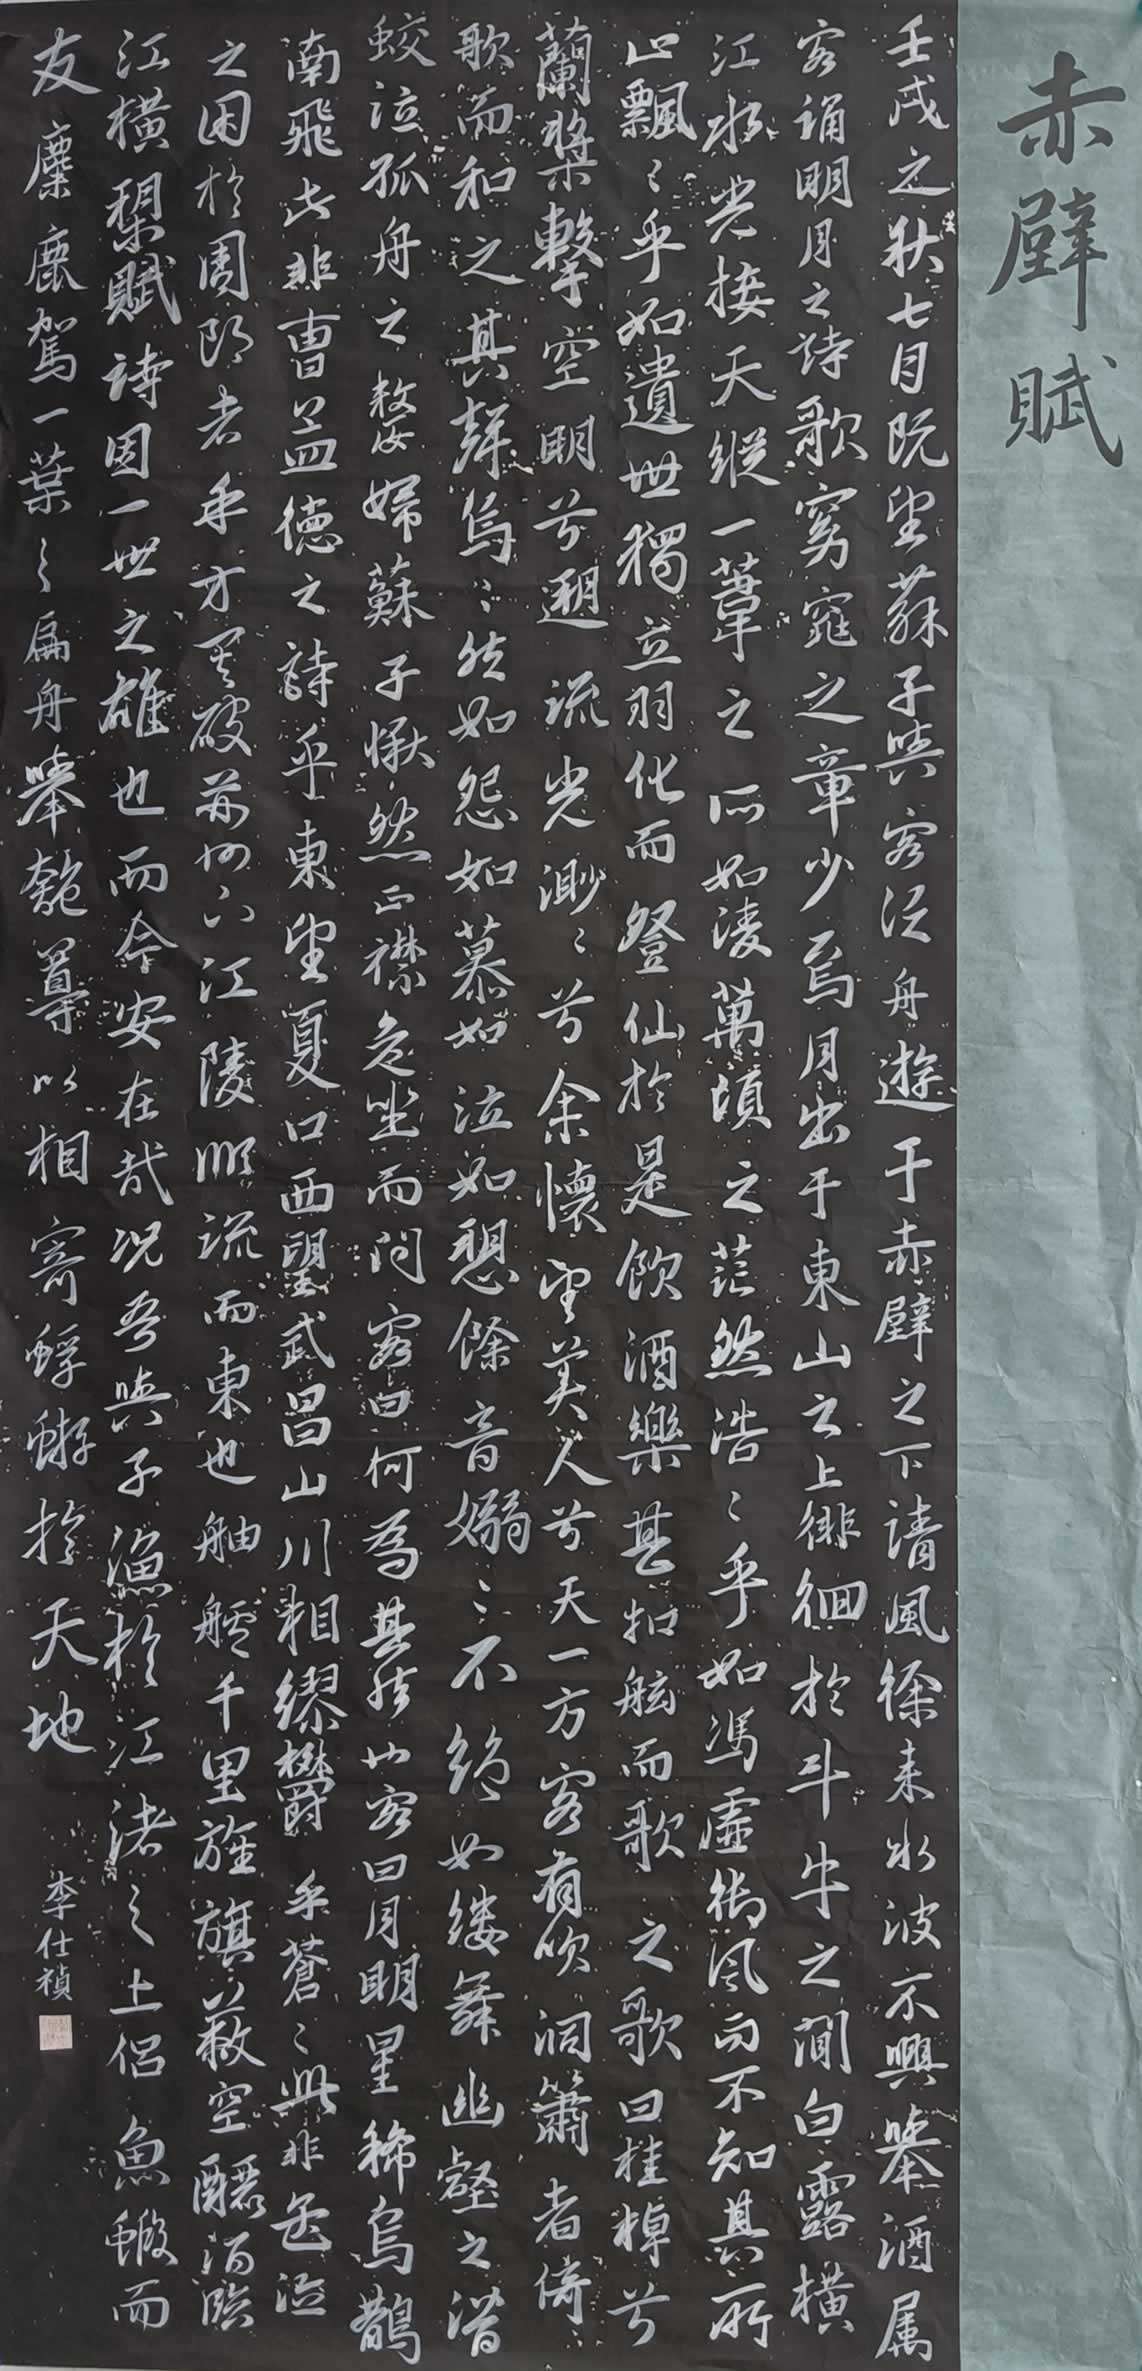 赤壁賦
壬戌之秋七月既望蘇子與客泛舟遊于赤壁之下清風徐来水波不興舉酒属
客誦明月之詩歌窈窕之章少焉月出于東山之上徘徊於斗牛之間白露橫
江水光接天縱一葦之所如凌萬頃之茫然浩〻乎如馮虛御風而不知其所
止飄〻乎如遺世獨立羽化而登仙於是飲酒樂甚扣舷而歌之歌曰桂棹兮
蘭槳擊空明兮遡流光渺〻兮余懷望美人兮天一方客有吹洞簫者倚
歌而和之其聲烏〻然如怨如慕如泣如愬餘音嫋〻不絶如縷舞幽壑之潛
蛟泣孤舟之嫠婦蘇子愀然正襟危坐而問客曰何為其然也客曰月明星稀烏鵲
南飛此非曹孟德之詩乎東望夏口西望武昌山川相繆欝乎蒼〻此非孟德
之困於周郎者乎方其破荆州下江陵順流而東也舳艫千里旌旗蔽空釃酒臨
江橫槊賦詩固一世之雄也而今安在哉况吾與子漁於江渚之上侣魚蝦而
友麋鹿駕一葉之扁舟舉匏尊以相寄蜉蝣於天地
李仕禎